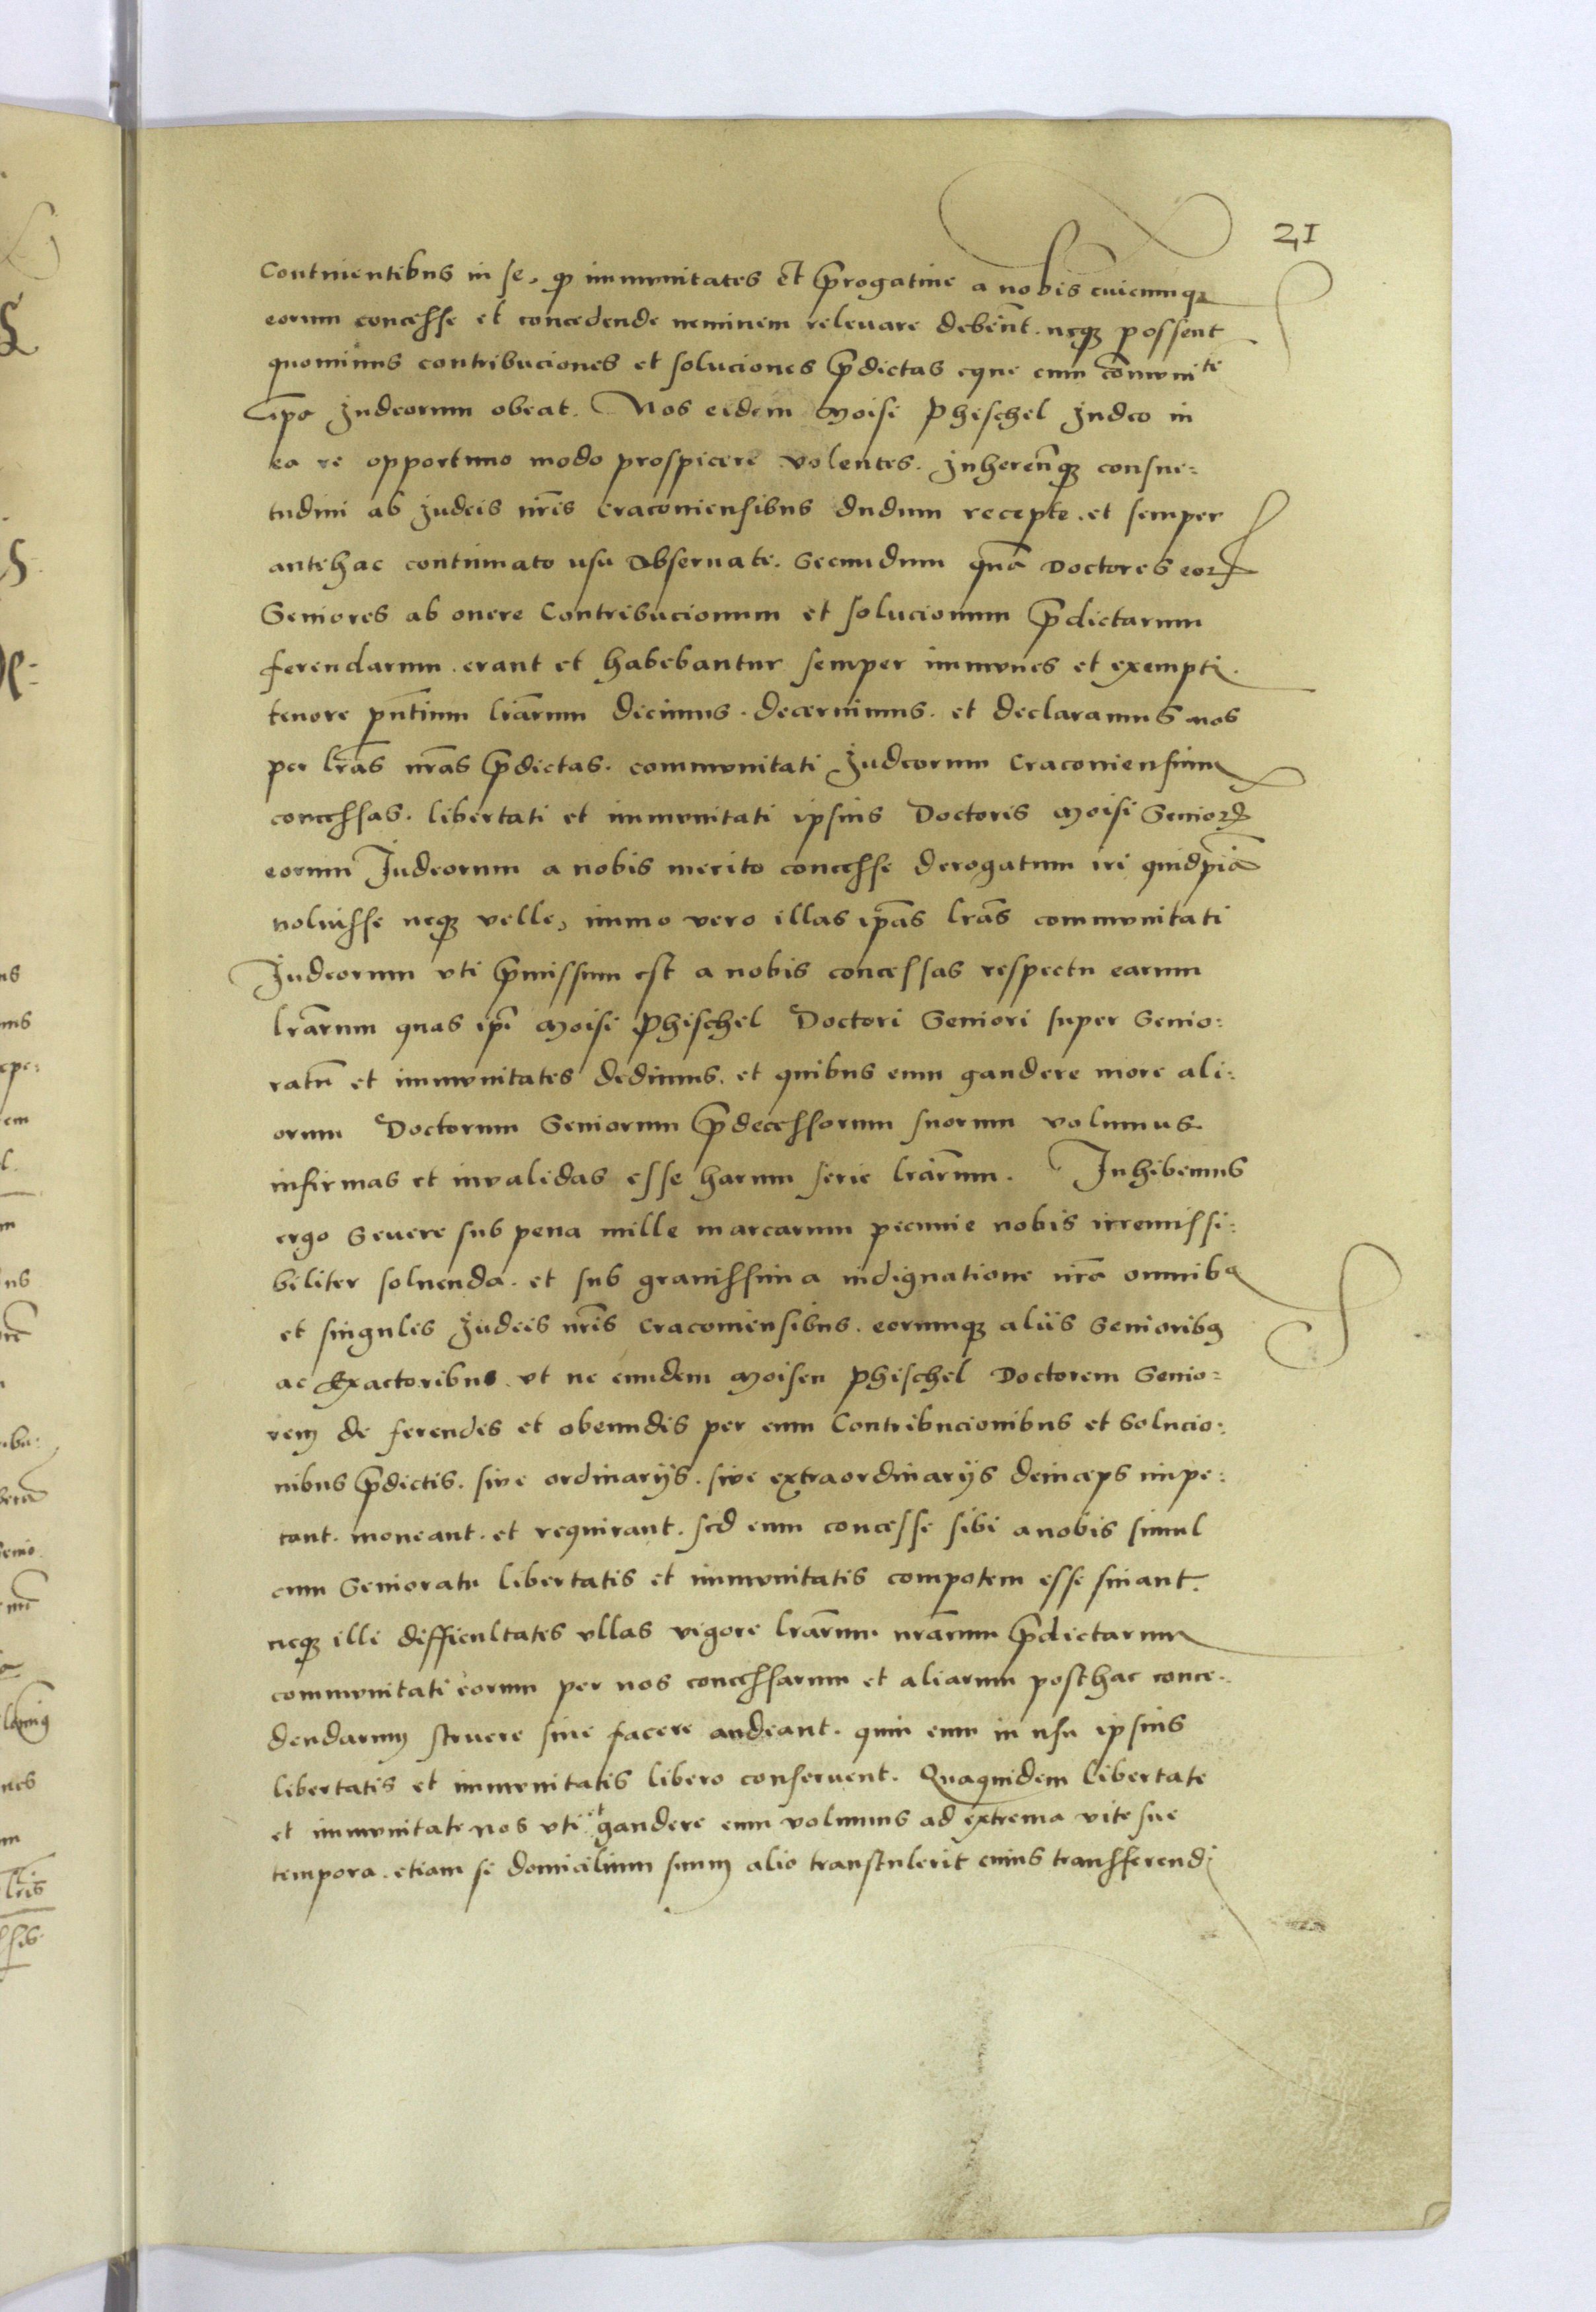 21
Continentibus in se, ꝙ immunitates et p̄rogatiue a nobis cuicunqꝫ
eorum concesse et concedende neminem releuare debeānt. neqꝫ possent
quominus contribuciones et soluciones p̄dictas eque cum com̄unite
ip̄a Judeorum obeat. Nos eidem Moisi Phischel Judeo in
ea re opportuno modo prospicere volentes. Inherenteꝫqꝫ consue:
tudini ab Judeis nr̄is Cracouiensibus dudum recepte. et semper
antehac continuato usu obseruate. Secundum quā Doctores eorꝝ
Seniores ab onere Contribucionum et solucionum p̄dictarum
ferendarum. erant et habebantur semper immunes et exempti.
tenore pn̄tium lr̄arum dicimus. decernimus. et declaramus nos
per lr̄as nr̄as p̄dictas. communitati Judeorum Cracouiensium
concessas. libertati et immunitati ipsius Doctoris Moisi Seniorꝭ
eorum Judeorum a nobis merito concesse derogatum iri quidpiā
noluisse neqꝫ velle, immo vero illas ip̄as lr̄as communitati
Judeorum vti p̄missum est a nobis concessas respectu earum
lr̄arum quas ip̄i Moisi Phischel Doctori Seniori super Senio:
ratū et immunitates dedimus. et quibus eum gaudere more ali:
orum Doctorum Seniorum p̄decessorum suorum volumus.
infirmas et inualidas esse harum serie lr̄arum. Inhibemus
ergo Seuere sub pena mille marcarum pecunie nobis irremissi:
biliter soluenda. et sub grauissima indignatione nr̄a omnibꝯ
et singulis Judeis nr̄is Cracouiensibus. eorumqꝫ aliis Senioribꝯ
ac Exactoribus. vt ne eundem Moisen Phischel Doctorem Senio:
rem de ferendis et obeundis per eum Contribucionibus et Solucio:
nibus p̄dictis. siue ordinarijs. siue extraordinarijs deinceps impe:
tant. moneant. et requirant. sed eum concesse sibi a nobis simul
cum Senioratu libertatis et immunitatis compotem esse sinant.
neqꝫ illi difficultates vllas vigore lr̄arum nr̄arum p̄dictarum
communitati eorum per nos concessarum et aliarum posthac conce:
dendarum struere siue facere audeant. quin eum in usu ipsius
libertatis et immunitatis libero conseruent. Quaquidem libertate
et immunitate nos vti et gaudere eum volumus ad extrema vite sue
tempora. etiam si domicilium suum alio transtulerit cuius transferendi